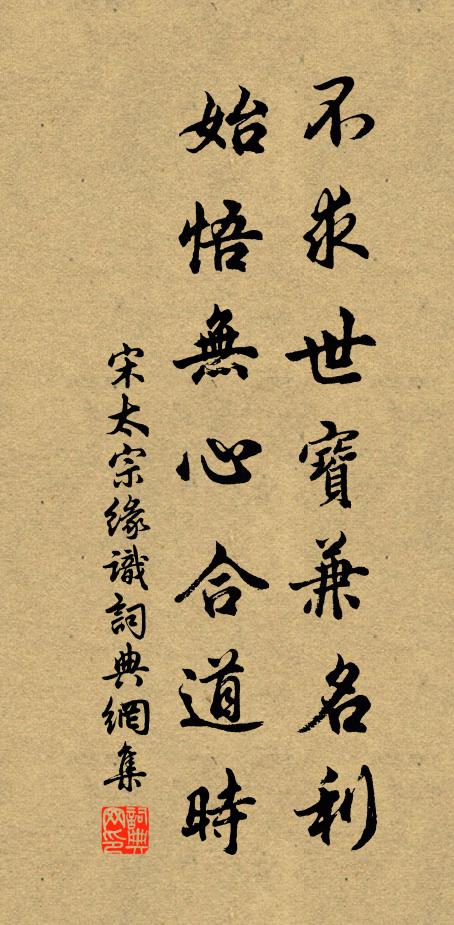 不求世寶兼名利
始悟無心合道時
宋太宗緣識詞典網集
詞典網印